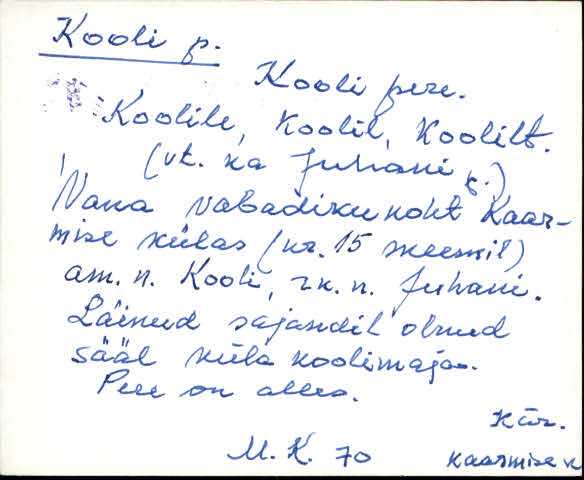 Kooli p.
Kooli pere.
Koolile, Koolil, Koolilt.
(vt. ka Juhani p.)
Vana vabadikukoht Kaar-
mise külas (nr. 15 skeemil)
am. n. Kooli, rk. n. Juhani.
Läinud sajandil olnud
sääl küla koolimaja.
Pere on alles.
Kär.
M. K. 70
Kaarmise k